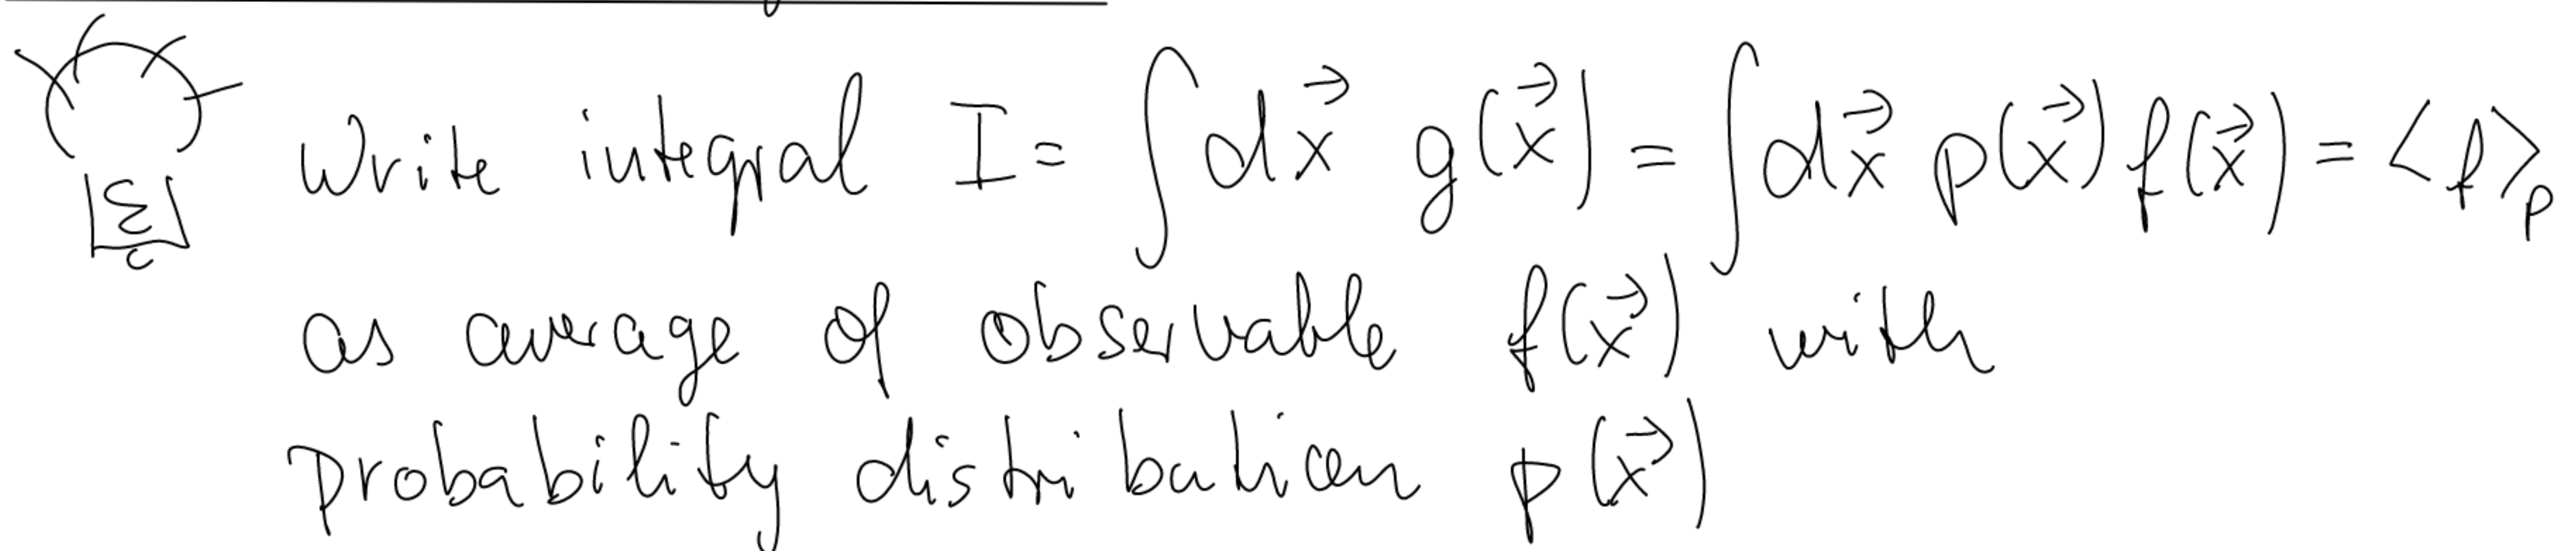 Write integral I = ∫ dx⃗ g(x⃗) = ∫ dx⃗ p(x⃗) f(x⃗) = ⟨f⟩ₚ
as average of observable f(x⃗) with
probability distribution p(x⃗)